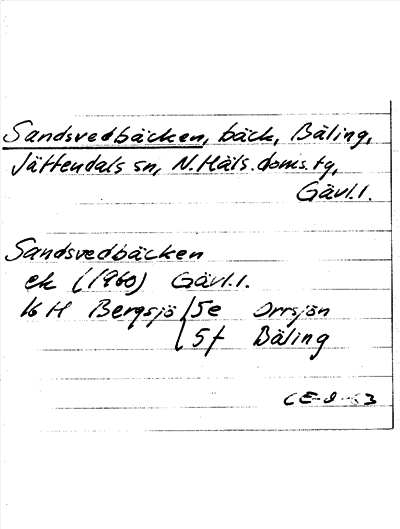 Sandsvedbäcken, bäck, Bäling,
Jättendals sn, N.Häls.doms.tg,
Gävl.l.
Sandsvedbäcken
ek (1960) Gävl.l.
16 H Bergsjö 5e Orrsjön
5f Bäling